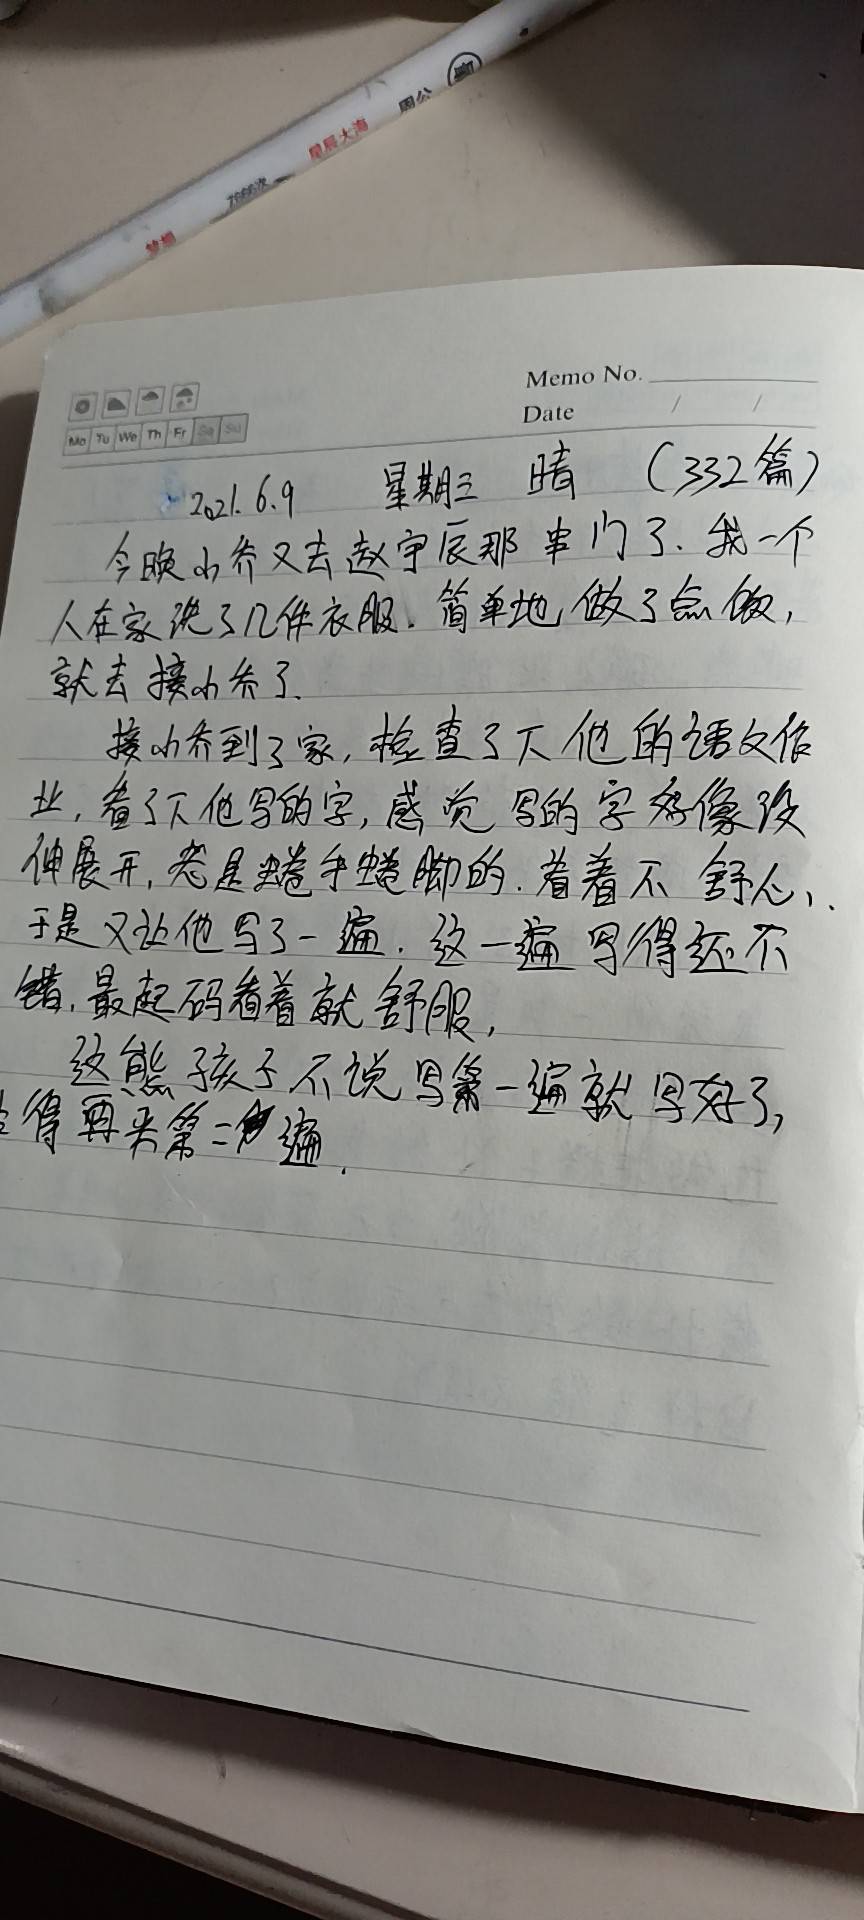 周公
星辰大海
7666次
梦想
Memo No.
Date / /
Mo Tu We Th Fr Sa Su
2021.6.9 星期三 晴 (332篇)
今晚小乔又去赵宇辰那串门了.我一个
人在家洗了几件衣服.简单地做了点饭,
就去接小乔了.
接小乔到了家,检查了下他的语文作
业,看了下他写的字,感觉写的字好像没
伸展开,老是蜷手蜷脚的.看着不舒心,.
于是又让他写了一遍.这一遍写得还不
错,最起码看着就舒服,
这熊孩子不说写第一遍就写好了,
得再来第二遍.